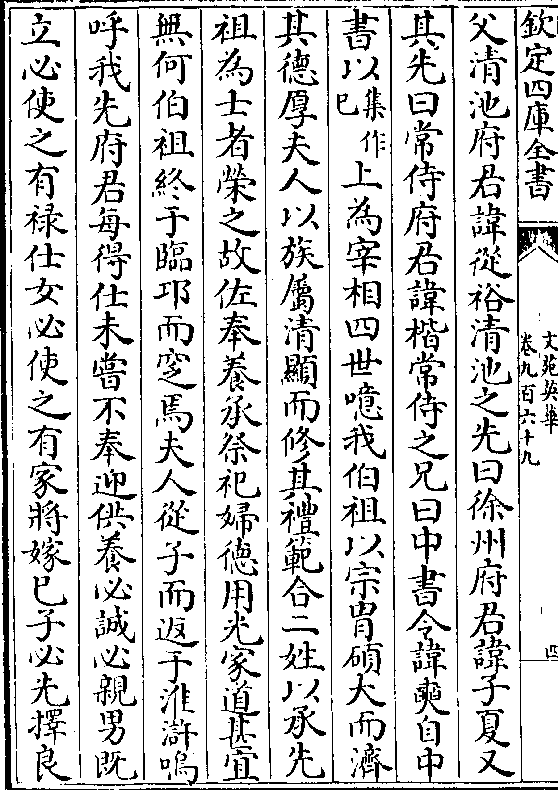 欽定四庫全書
文苑英華
卷九百六十九
四
父清池府君諱從裕清池之先曰徐州府君諱子夏又
其先曰常侍府君諱楷常侍之兄曰中書令諱奭自中
書以集作巳上為宰相四世噫我伯祖以宗胄碩大而濟
其德厚夫人以族屬清顯而修其禮範合二姓以承先
祖為士者榮之故佐奉養承祭祀婦德用光家道甚宜
無何伯祖終于臨邛而窆焉夫人從子而返于淮滸嗚
呼我先府君每得仕未嘗不奉迎供養必誠必親男既
立必使之有祿仕女必使之有家將嫁巳子必先擇良